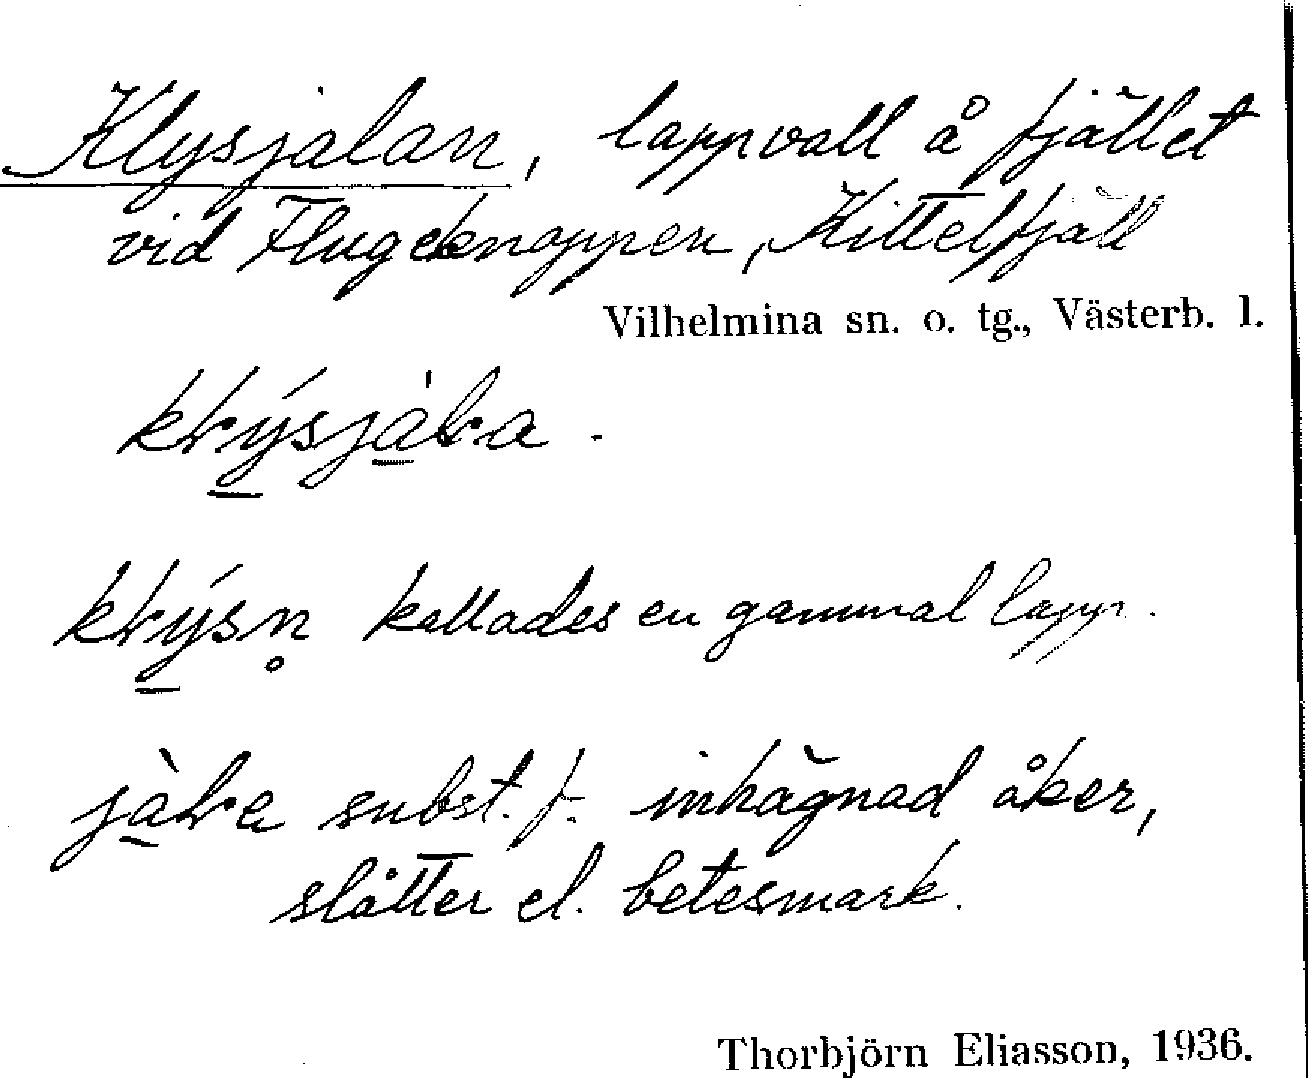 Klysjalan, lappvall å fjället
vid Flugeknoppen, Kittelfjäll
Vilhelmina sn. o. tg., Västerb. l.
kɫýsjàɫa.
kɫýsn̥ kallades en gammal lapp.
jàɫa subst. f. inhägnad åker,
slåtter el. betesmark.
Thorbjörn Eliasson, 1936.